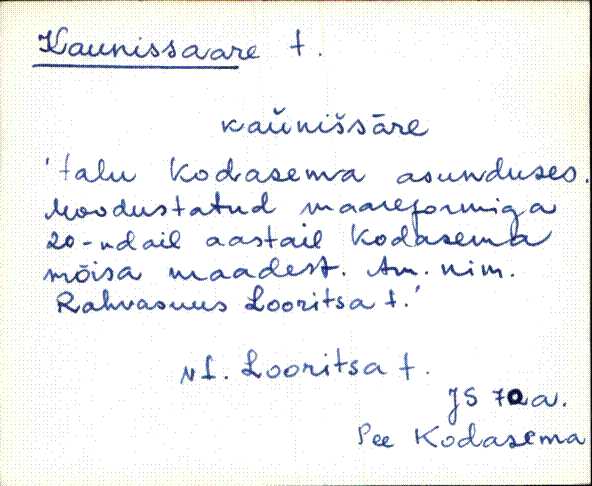 Kaunissaare t.
kaŭnišsāre
'talu Kodasema asunduses.
Moodustatud maareformiga
20-ndail aastail Kodasema
mõisa maadest. Am. nim.
Rahvasuus Looritsa t.'
vt. Looritsa t.
JS 70a.
Pee Kodasema